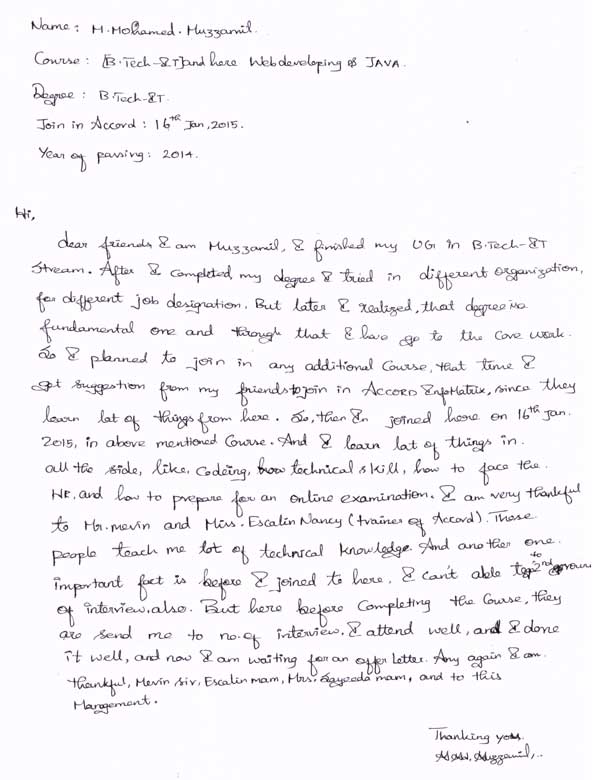 Name: M.Mohamed.Muzzamil.
Course: [B.Tech-IT] and here Web developing of JAVA.
Degree: B.Tech-IT.
Join in Accord: 16th Jan, 2015.
Year of passing: 2014.
Hi,
dear friends I am Muzzamil, I finished my UG in B.Tech-IT
Stream. After I completed, my degree I tried in different organization,
for different job designation. But later I realized, that degree is
fundamental one and through that I have go to the core work.
So I planned to join in any additional Course, that time I
got suggestion from my friends to join in Accord InfoMatrix, since they
learn lot of things from here. So, then I joined here on 16th Jan.
2015, in above mentioned Course. And I learn lot of things in.
all the side, like, Codeing, technical skill, how to face the.
HR, and how to prepare for an online examination. I am very thankful
to Mr. Mevin and Miss. Escalin Nancy (trainer of Accord). These
people teach me lot of technical knowledge. And another one.
important fact is before I joined to here, I can't able to 2nd
of interview, also. But here before Completing the Course, they
are send me to no. of interview. I attend well, and I done
it well, and now I am waiting for an offer letter. Any again I am.
thankful, Mevin sir, Escalin mam, Mrs. Sayeeda mam, and to this
Mangement.
Thanking you.
Muzzamil,..